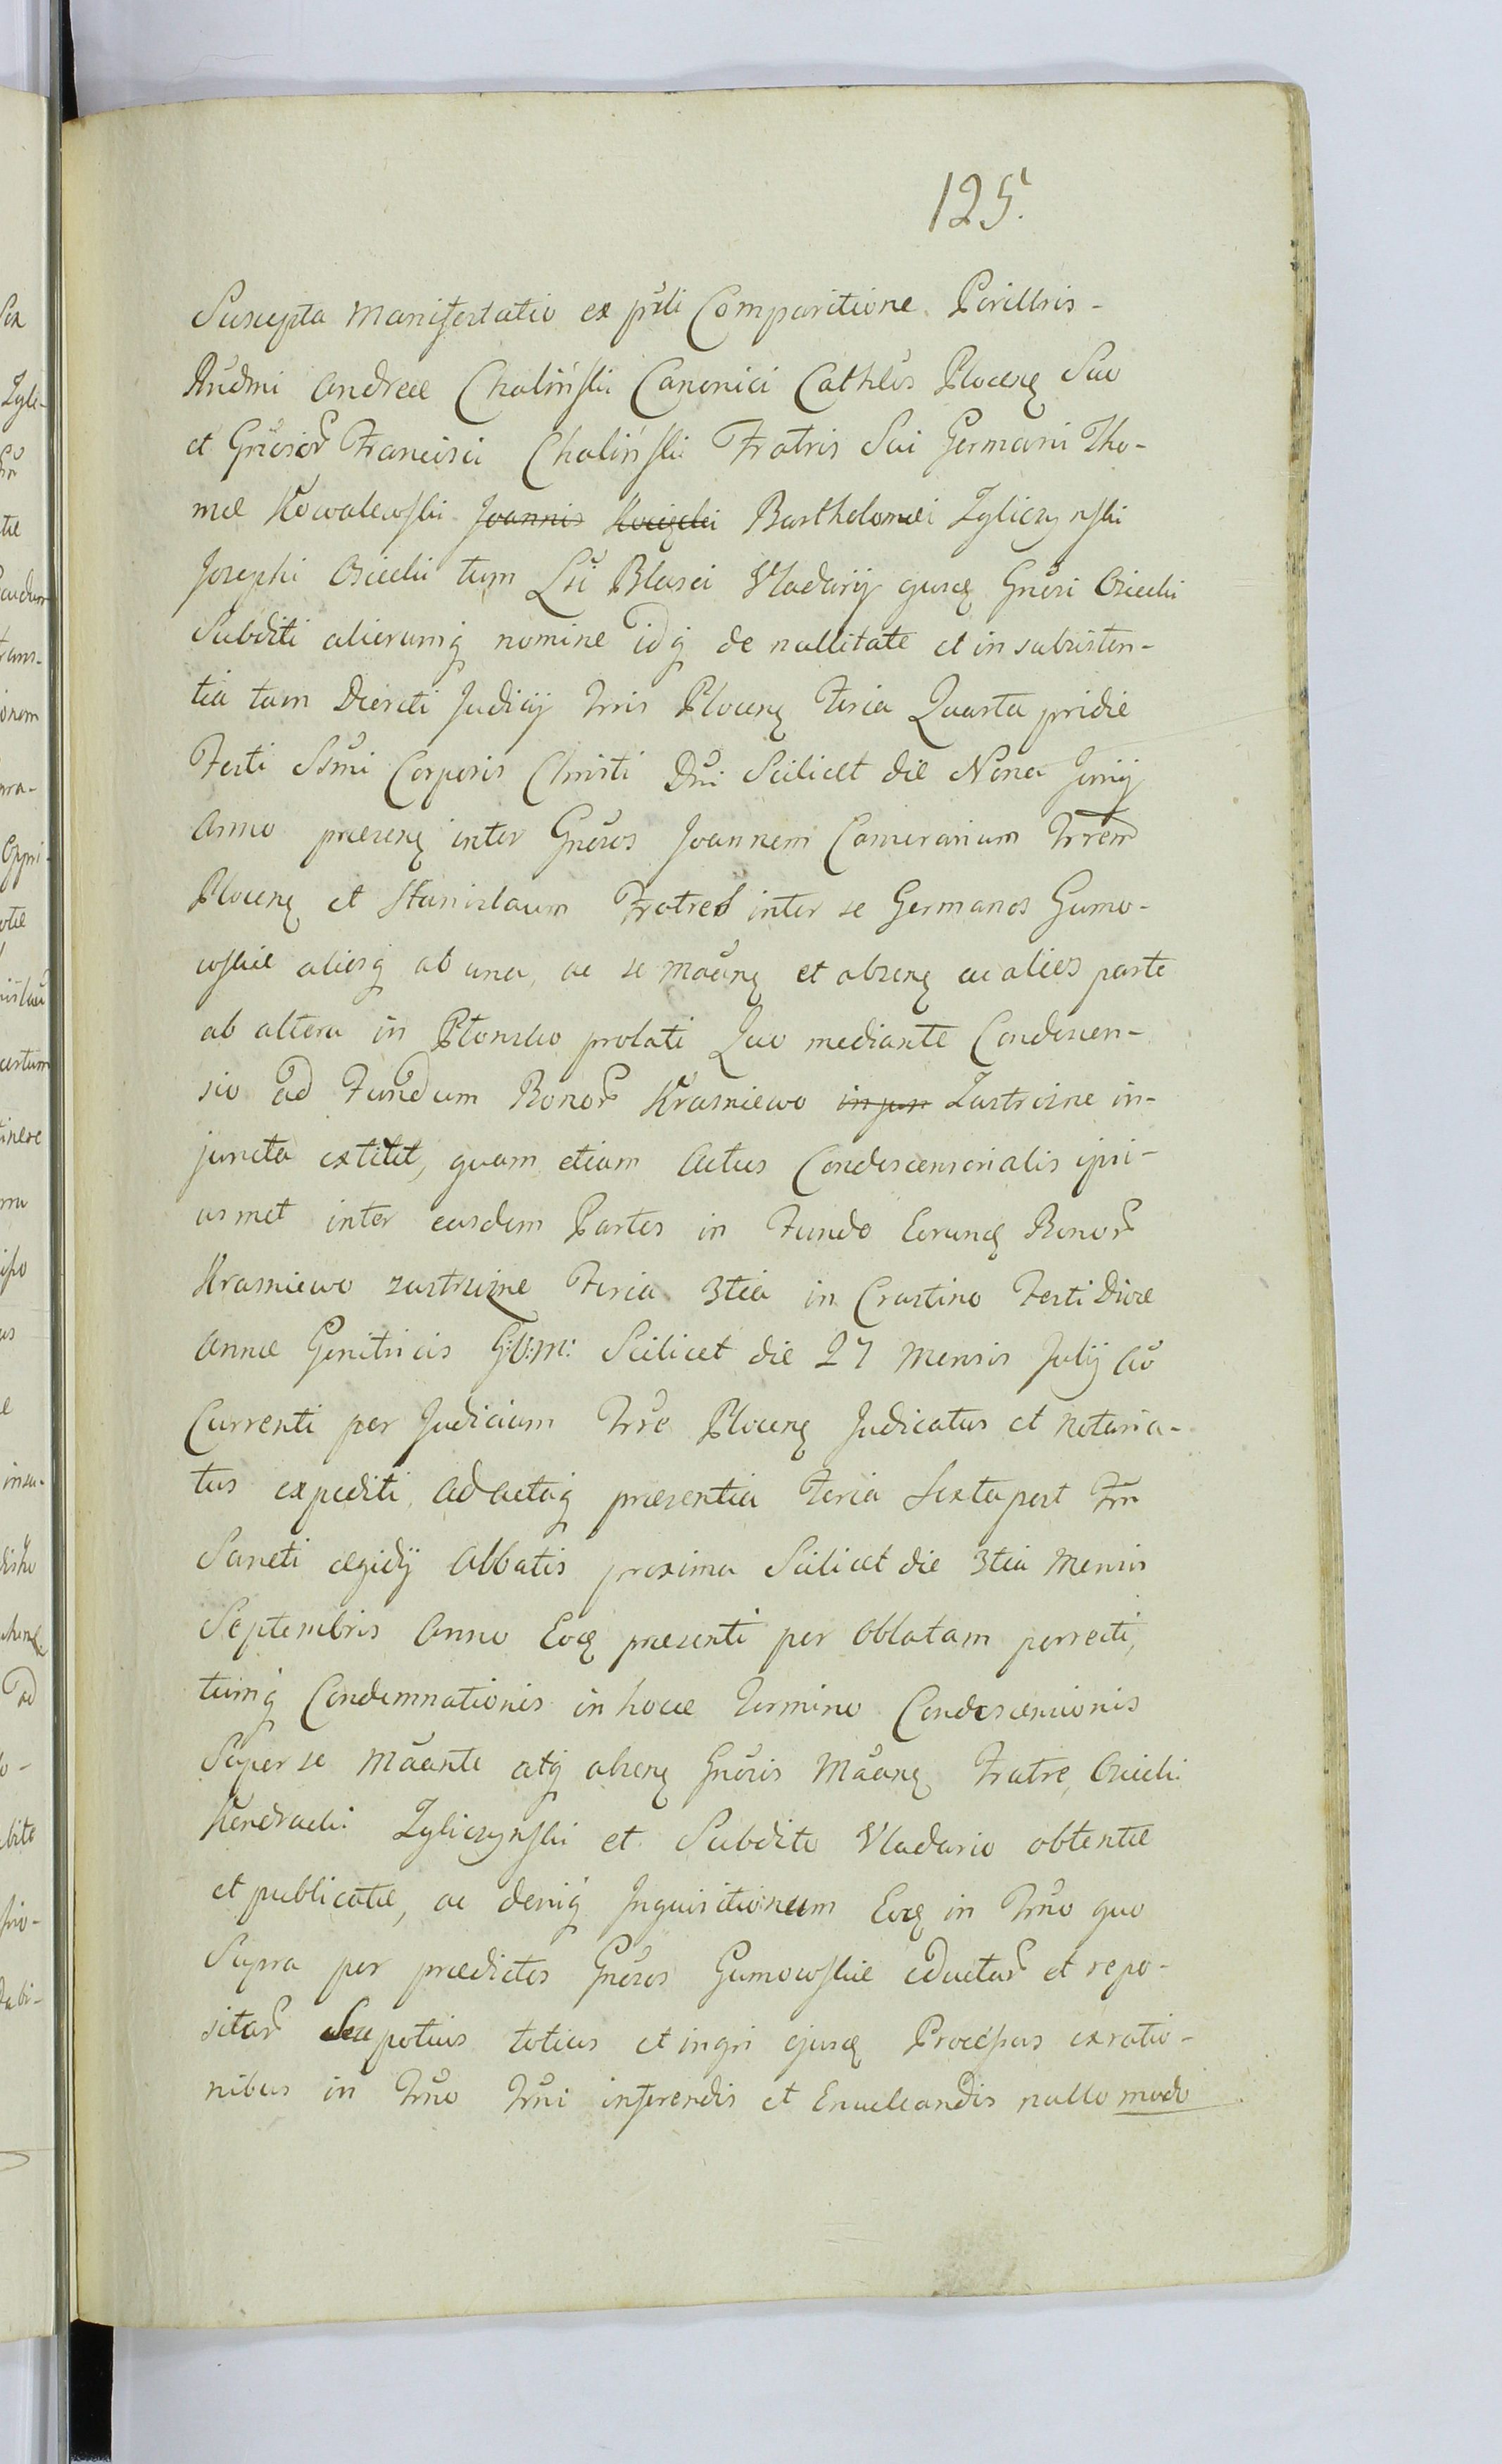 125.
Suscepta Manifestatio ex pñti Comparitione Perillris-
Rñdmi Andreæ Chaliński Canonici Cathlis Plocenſ Suo
et Gñrosor Francisci Chaliński Fratris Sui Germani Tho-
mæ Kowalewski Joannis Bartholomæi Zyliczynski
Josephi Osiecki tum Blasei Vladarij ejusꝗ Gñrosi Osiecki
Subditi aliorumꝗ nomine idꝗ de nullitate et insubsisten-
tia tam Decreti Judicij Trris Plocenſ Feria Quarta pridie
Festi Ssmi Corporis Christi Dni Scilicet die Nona Junij
Anno præsenſ inter Gñrosos Joannem Camerarium Trrem
Plocenſ et Stanislaum Fratres inter se Germanos Gumo-
wskie aliosꝗ ab una, ac se Mãnſ et absenſ ac alios parte
ab altera in Płonsko prolati Quo mediante Condescen-
sio ad Fundum Bonor Krasniewo in jun Zastrozne in-
juncta extitit, quam etiam Actus Condescensorialis ipsi-
usmet inter easdem Partes in Fundo Eorunꝗ Bonor
Krasniewo zastrozne Feria 3tia in Crastino Festi Divæ
Annæ Genitricis G:V:M: Scilicet die 27 Mensis Julij Aõ
Currenti per Judicium Trre Plocenſ Judicatus et Notaria-
tus expediti, ad Actaꝗ præsentia Feria Sexta post Fm
Sancti Ægidij Abbatis proxima Scilicet die 3tia Mensis
Septembris Anno Eoꝗ præsenti per Oblatam porrecti,
tumꝗ Condemnationis in hocce Termino Condescensionis
Super se Mãnte atꝗ absenſ Gñrosis Mãnſ Fratre, Osiecki
Kendracki Zyliczynski et Subdito Vladario obtentæ
et publicatæ, ac deniꝗ Inquisitionum Eoꝗ in Trno quo
Supra per prædictos Gñrosos Gumowskie eductar et repo-
sitar Seu potius totius et ingri ejusꝗ Processus ex ratio-
nibus in Trno Trni inferendis et Enucleandis nullo modo